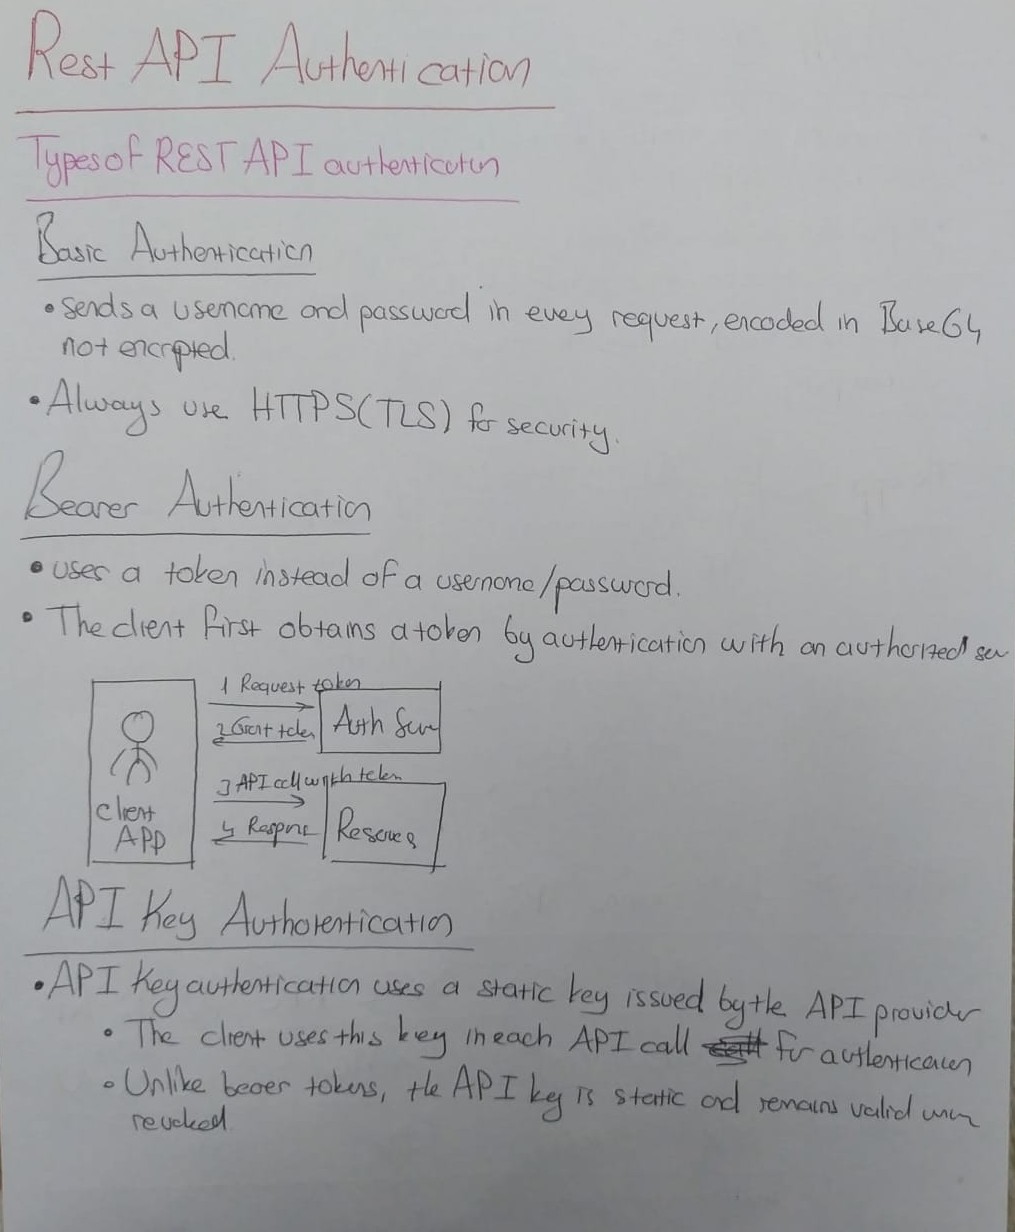 Rest API Authentication
Types of REST API authentication
Basic Authentication
• sends a username and password in every request, encoded in Base64
not encrpted.
• Always use HTTPS (TLS) for security.
Bearer Authentication
• uses a token instead of a username/password.
• The client first obtains a token by authentication with an authorized ser
1 Request token
Auth Serv
2 Grant token
3 API call with token
client
APP
4 Response
Resources
API Key Authorentication
• API Key authentication uses a static key issued by the API provider
• The client uses this key in each API call for authentication
• Unlike bearer tokens, the API key is static and remains valid until
revoked.